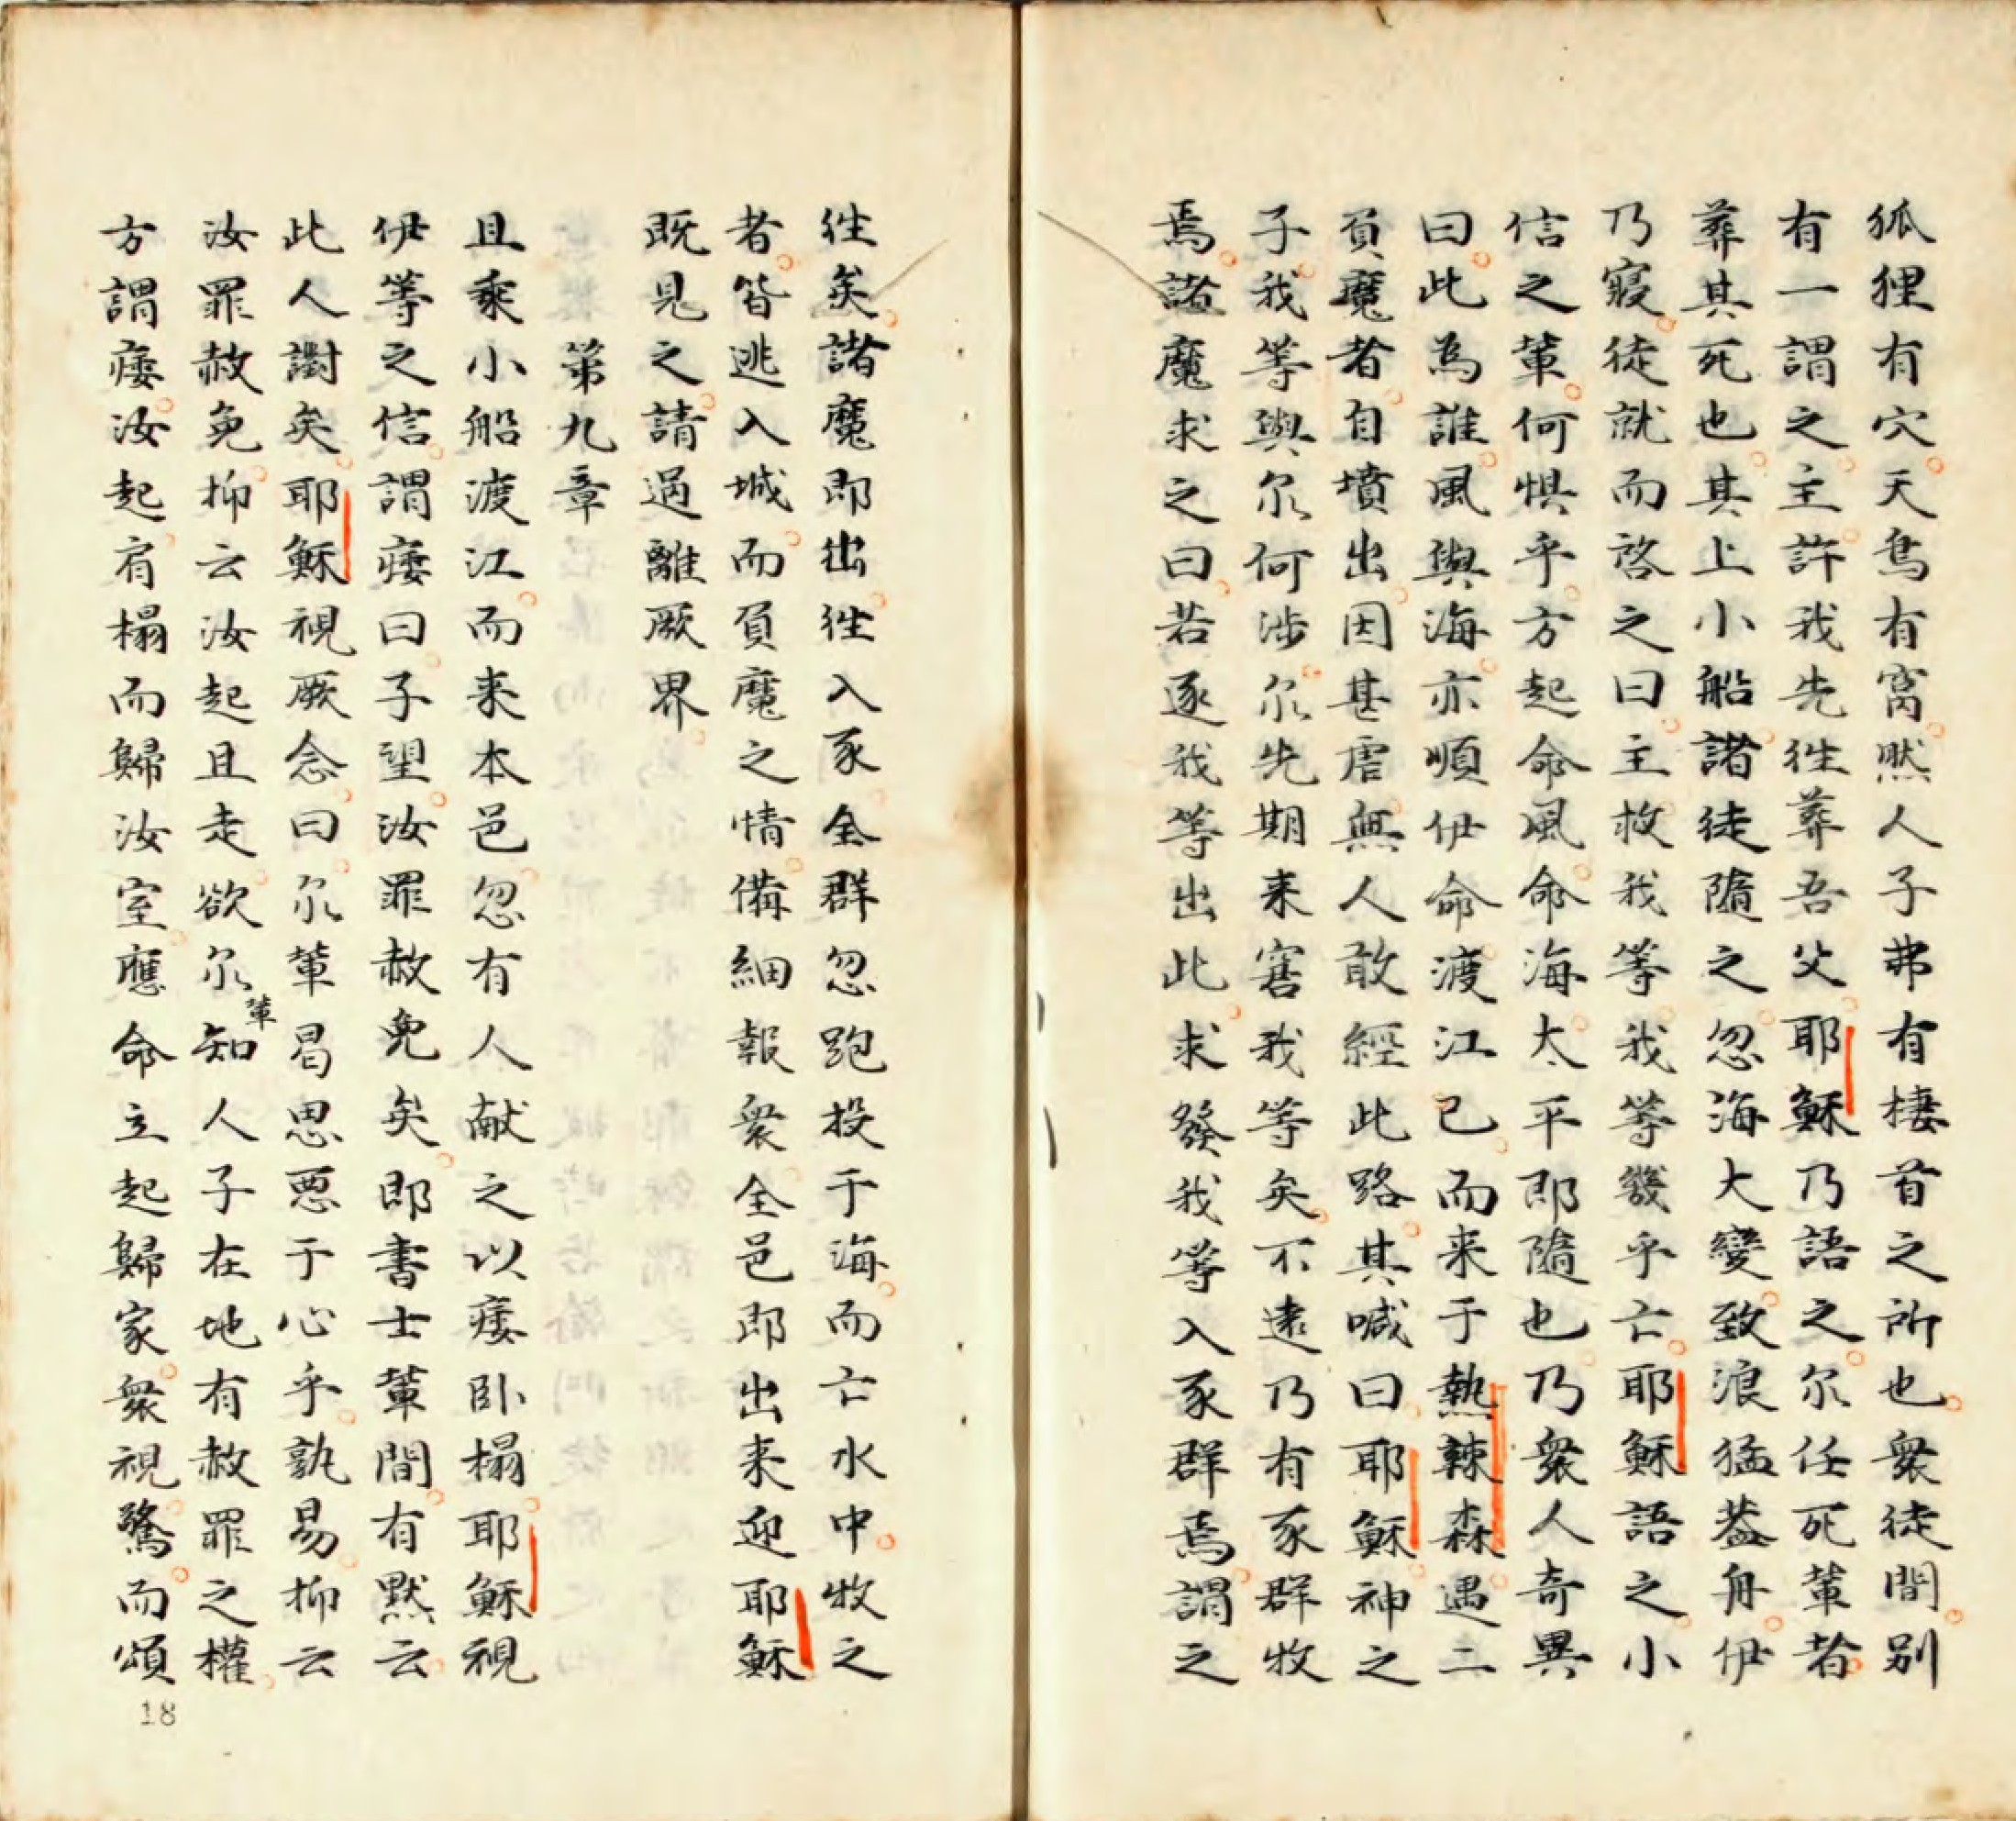 狐狸有穴天鳥有窩然人子弗有棲首之所也衆徒間别
有一謂之主許我先徃葬吾父耶穌乃語之尔任死輩者
葬其死也其上小船諸徒隨之忽海大變致浪猛葢舟伊
乃寢徒就而啓之曰主救我等我等幾乎亡耶穌語之小
信之輩何惧乎方起命風命海太平即隨也乃衆人奇異
曰此為誰風與海亦順伊命渡江已而来于熱辣森遇二
負魔者自墳出因甚唐無人敢經此路其喊曰耶穌神之
子我等與尔何涉尔先期来害我等矣不遠乃有豕群牧
焉諸魔求之曰若逐我等出此求發我等入豕群焉謂之
徃矣諸魔即出徃入豕全群忽跑投于海而亡水中牧之
者皆逃入城而負魔之情備細報衆全邑即出来迎耶穌
既見之請過離厥界
第九章
且乘小船渡江而来本邑忽有人献之以痿卧榻耶穌視
伊等之信謂痿曰子望汝罪赦免矣即書士輩間有默云
此人讟矣耶穌視厥念曰尔輩曷思惡于心乎孰易抑云
汝罪赦免抑云汝起且走欲尔輩知人子在地有赦罪之權
方謂痿汝起肩榻而歸汝室應命立起歸家衆視驚而頌
18